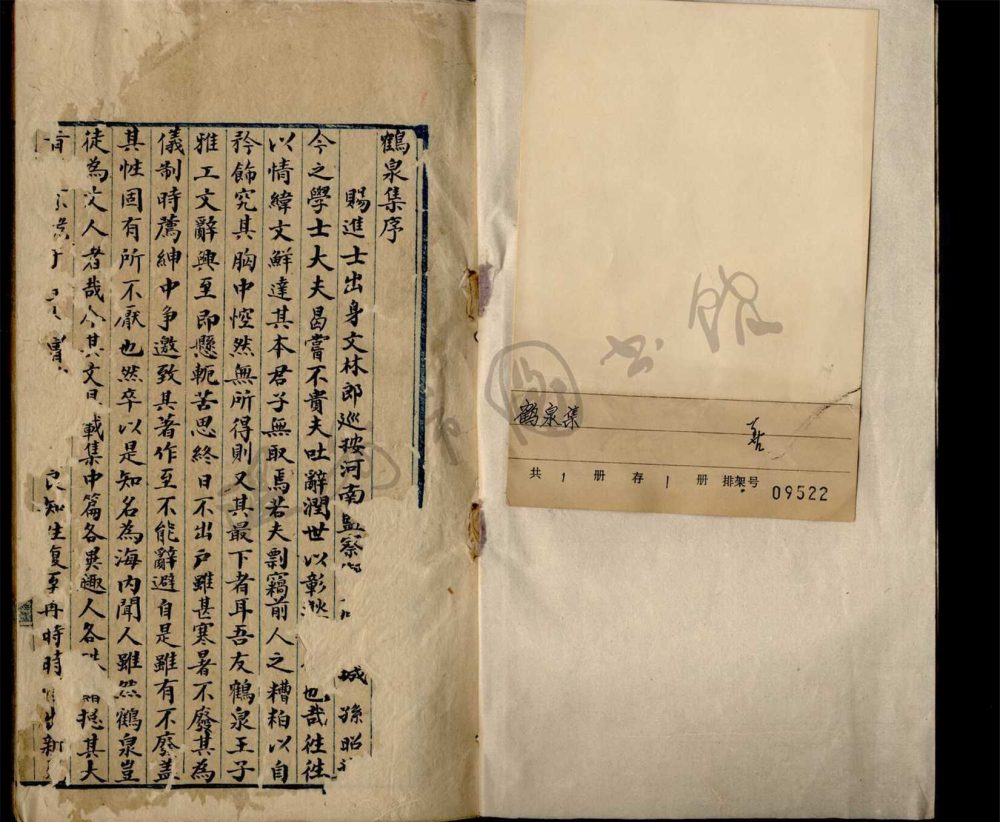 鶴泉集序
賜進士出身文林郎巡按河南監察 城孫昭
今之學士大夫曷嘗不貴夫吐辭潤世以彰 也哉往往
以情緯文鮮達其本君子無取焉若夫剽竊前人之糟粕以自
矜飾究其胸中悾然無所得則又其最下者耳吾友鶴泉王子
雅工文辭興至即懸軛苦思終日不出戶雖甚寒暑不廢其為
儀制時薦紳中爭邀致其著作至不能辭避自是雖有不廢蓋
其性固有所不厭也然卒以是知名為海内聞人雖然鶴泉豈
徒為文人者哉今其文具載集中篇各異趣人各 其大
知生復至再時時 新
鹤泉集
共 1 册 存 1 册 排架号
09522
书 馆